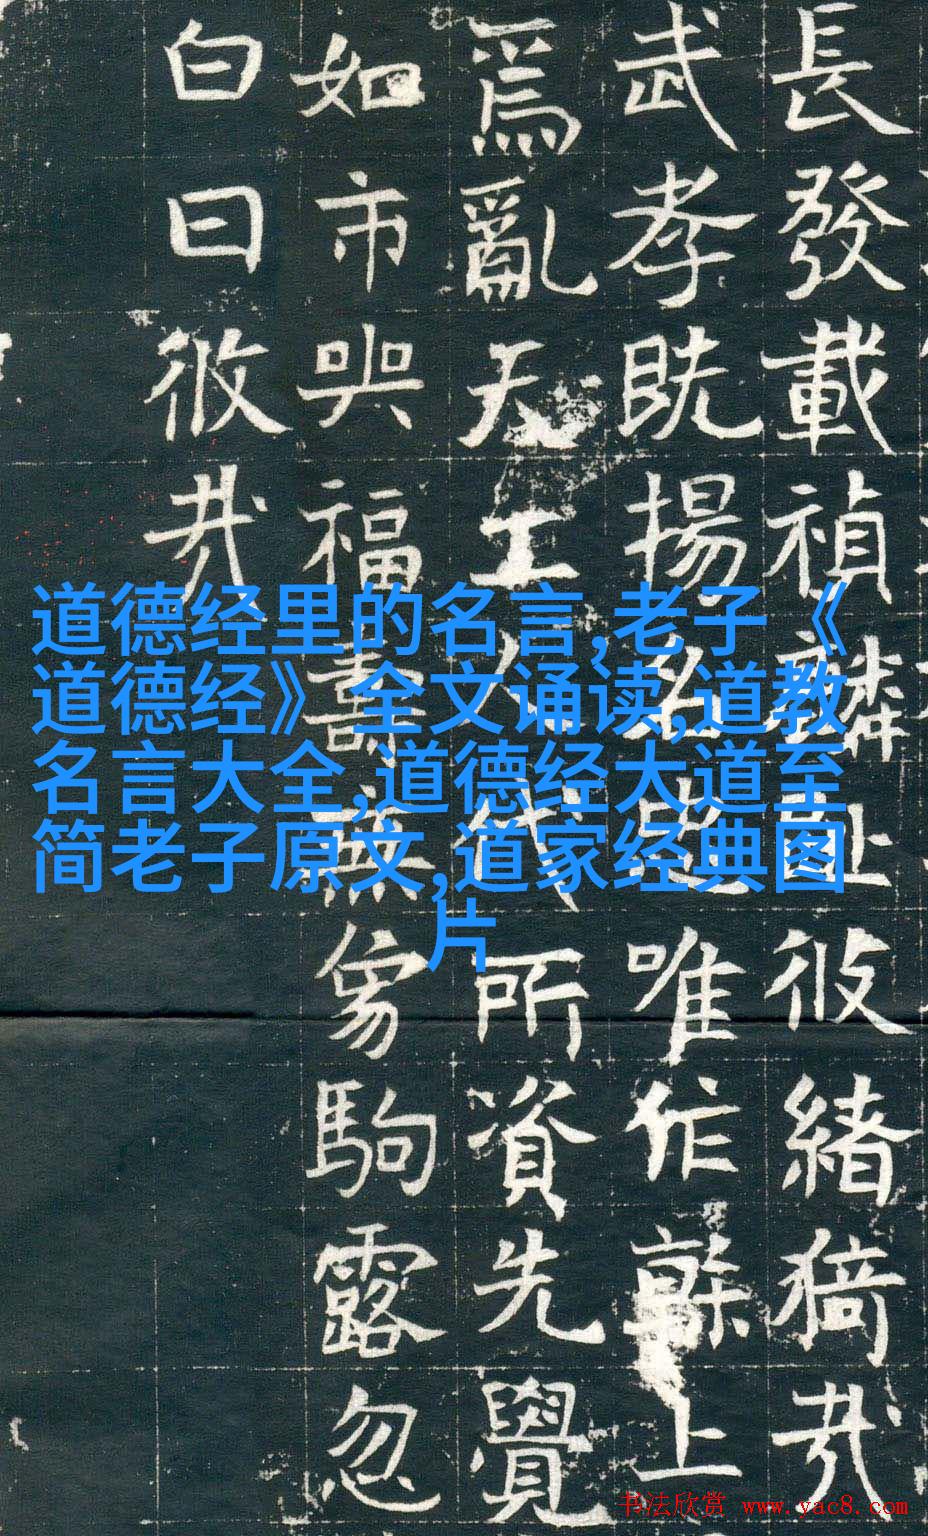 長發載禎麟趾彼緒猗哉
武孝既揚名此唯作幹上
爲亂天工人代所資先覺
如市與福壽無象駒露忽
白日攸哉
道德经里的名言,老子《
道德经》全文诵读,道教
名言大全,道德经大道至
简老子原文,道家经典图
片
书法欣赏 www.yac8.com